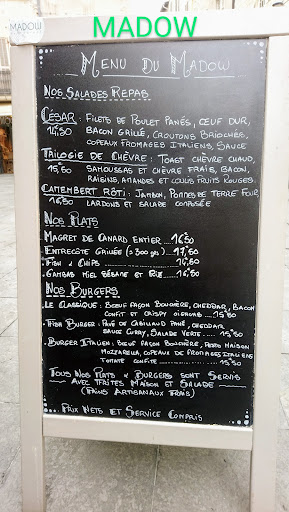 MADOW
MADOW
MENU DU MADOW
NOS SALADES REPAS
CÉSAR: FILETS DE POULET PANÉS, ŒUF DUR,
14,50 BACON GRILLÉ, CROUTONS BRIOCHÉS,
COPEAUX FROMAGES ITALIENS SAUCE
TRILOGIE DE CHÈVRE: TOAST CHÈVRE CHAUD,
15,50 SAMOUSSAS ET CHÈVRE FRAIS, BACON,
RAISINS, AMANDES ET COULIS FRUITS ROUGES.
CAMEMBERT RÔTI: JAMBON, POMMES DE TERRE FOUR,
16,50 LARDONS ET SALADE COMPOSÉE
NOS PLATS
MAGRET DE CANARD ENTIER....16,50
ENTRECÔTE GRILLÉE (300 GRS) ....17,50
FISH & CHIPS ........14,50
GAMBAS MIEL SÉSAME ET RIZ....16,50
NOS BURGERS
LE CLASSIQUE: BŒUF FAÇON BOUCHÈRE, CHEDDAR, BACON
CONFIT ET CRISPY OIGNONS ... 15,50
FISH BURGER: PAVÉ DE CABILLAUD PANÉ, CHEDDAR,
SAUCE CURRY, SALADE VERTE ... 15,50
BURGER ITALIEN: BŒUF FAÇON BOUCHÈRE, PESTO MAISON
MOZZARELLA, COPEAUX DE FROMAGES ITALIENS
TOMATE CONFITE ... 15,50
TOUS NOS PLATS & BURGERS SONT SERVIS
AVEC FRITES MAISON ET SALADE
(PAINS ARTISANAUX FRAIS)
PRIX NETS ET SERVICE COMPRIS